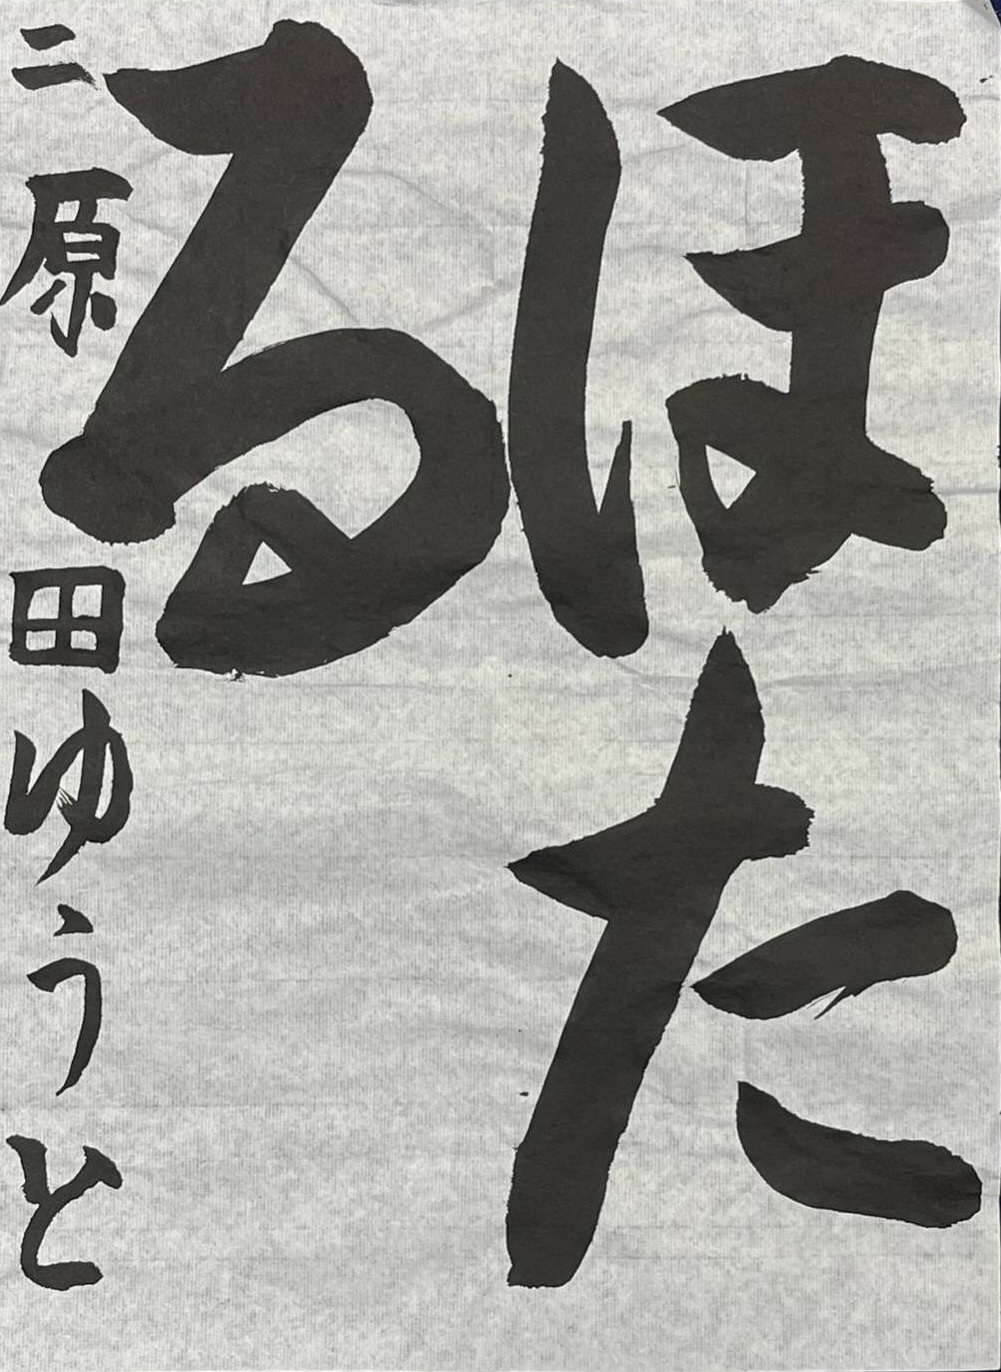 ほたる
二 原田ゆうと